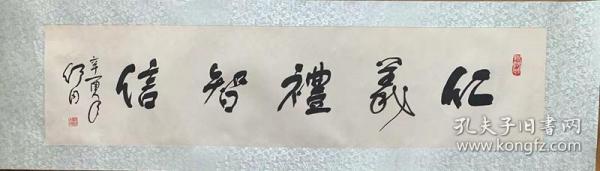 仁義禮智信
辛酉年
舒同
孔夫子旧书网
www.kongfz.com